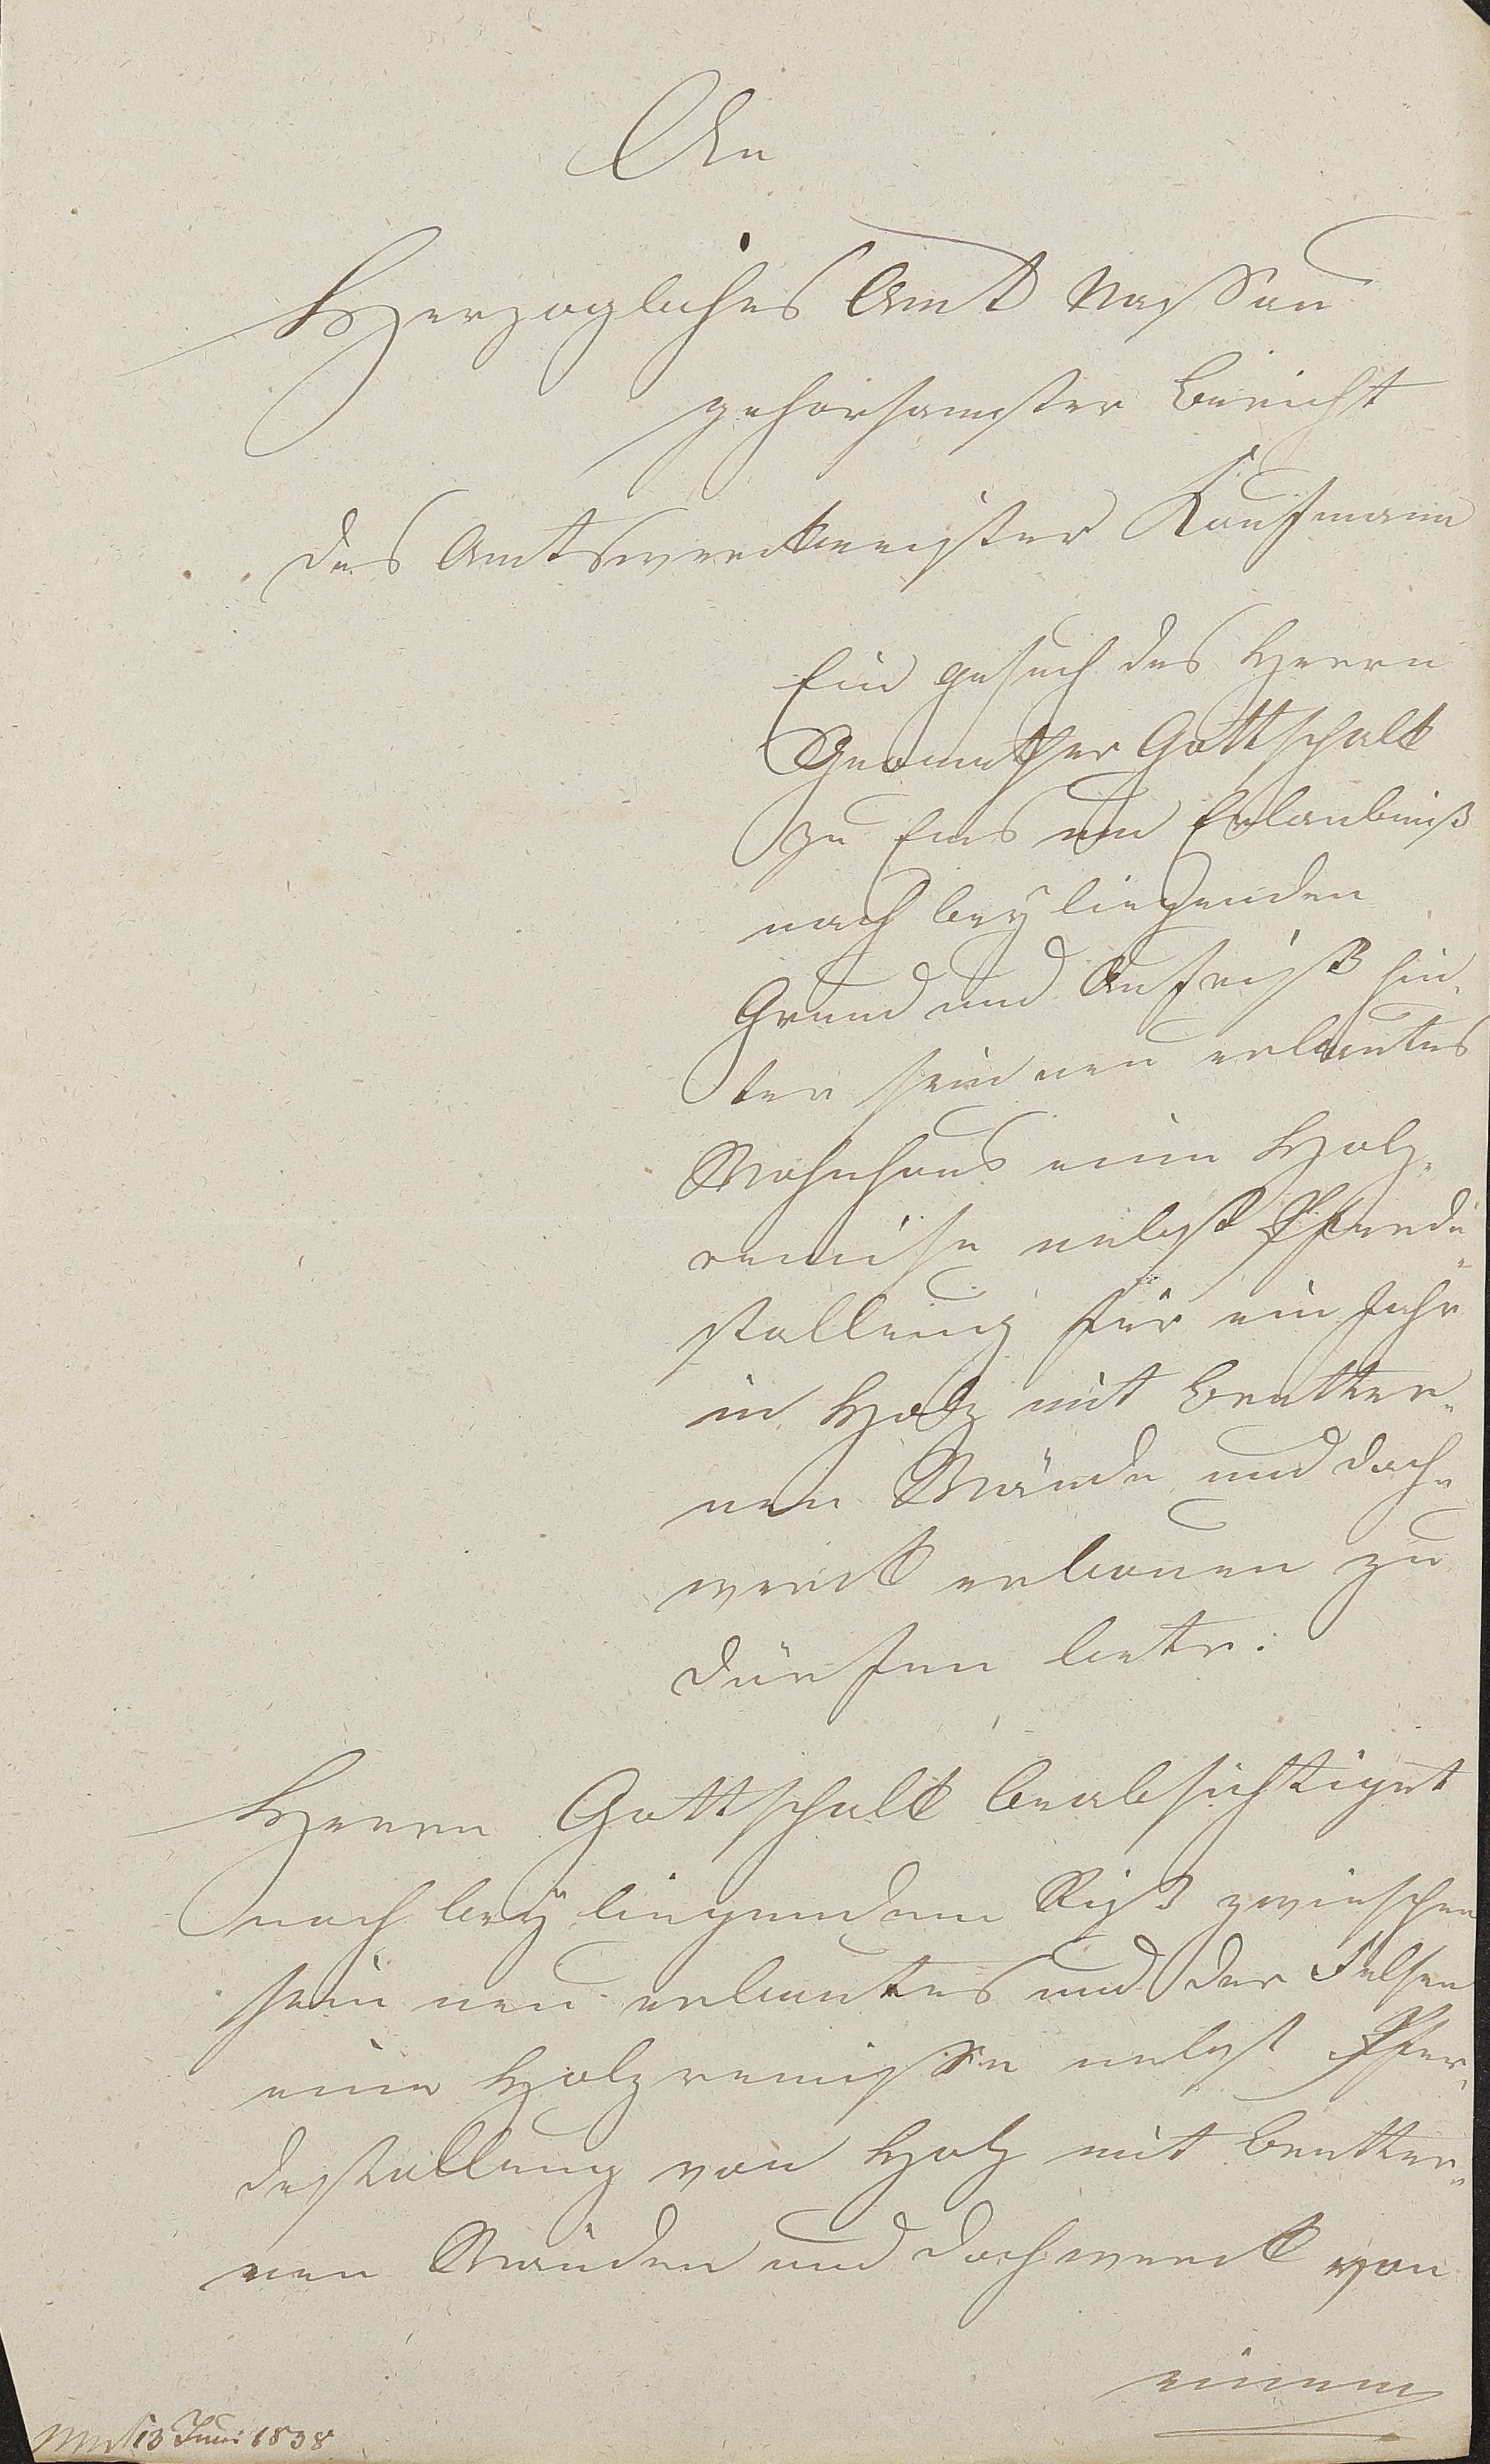 An
Herzogliches Amt Nassau
gehorsamster Bericht
des Amtswerckmeister Kaufmann
Ein gesuch des Herrn
Geomether Gottschalk
zu Ems um Erlaubniß
nach beyliegenden
Grund und Aufriß hin-
ter sein neu erbautes
Wohnhaus eine Holz-
remise nebst Pferde-
stallung für ein Jahr
in Holz mit Bretter-
nen Wände und dach-
werck erbauen zu
dürfen betr:
Herrn Gottschalk beabsichtiget
nach beyliegendem Riß zwischen
sein neu erbautes und der Felsen
eine Holzremisse nebst Pfer-
destallung von Holz mit Bretter-
nen Wänden und dachwerck von
einem
13 Juni 1838